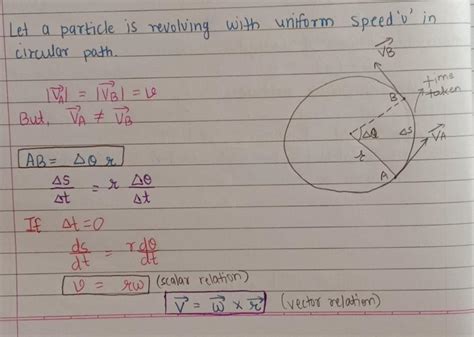 Let a particle is revolving with uniform speed 'v' in
circular path.
|V⃗A| = |V⃗B| = v
But, V⃗A ≠ V⃗B
AB = Δθ r
Δs/Δt = r Δθ/Δt
If Δt=0
ds/dt = rdθ/dt
v = rω (scalar relation)
V⃗ = ω⃗ × r⃗ (vector relation)
V⃗B
B
time
taken
Δθ
Δs
V⃗A
r
A